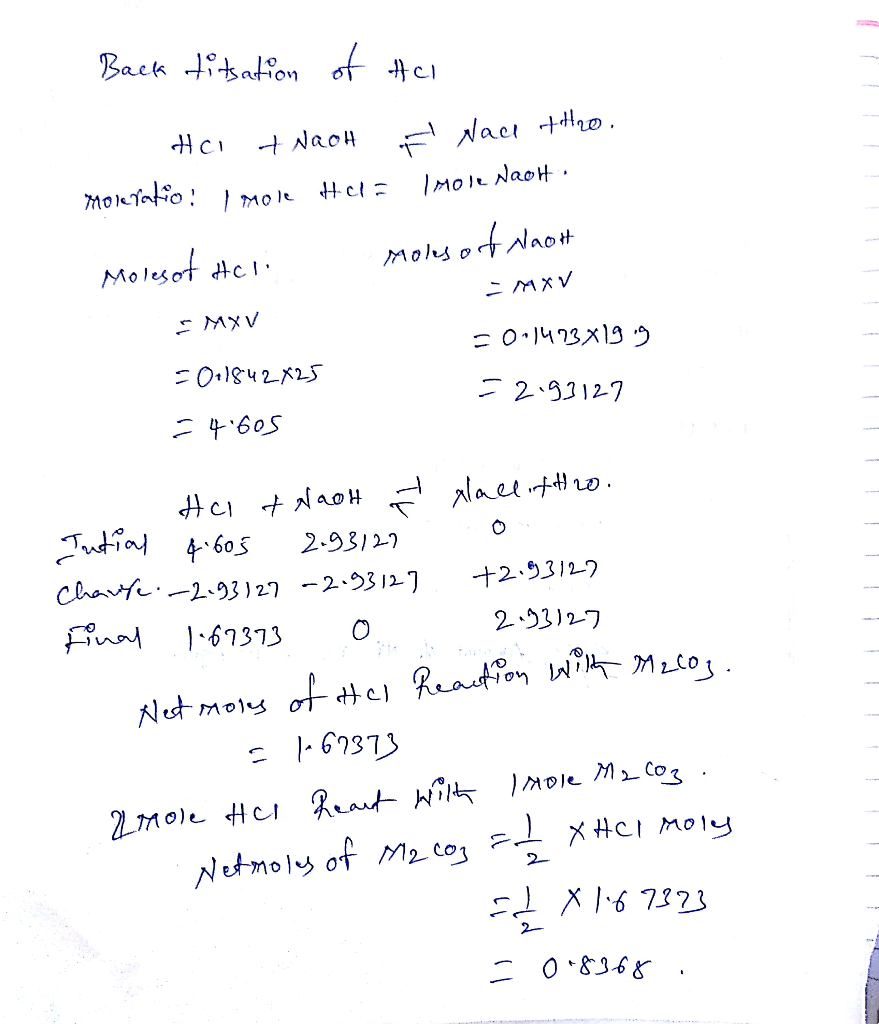 Back titration of HCl
HCl + NaOH ⇌ NaCl + H2O.
Moleratio: 1 mole HCl = 1 mole NaOH.
Moles of HCl.
= M×V
= 0.1842×25
= 4.605
Moles of NaOH
= M×V
= 0.1473×19.9
= 2.93127
HCl + NaOH ⇌ NaCl + H2O.
Initial 4.605 2.93127 0
Change. -2.93127 -2.93127 +2.93127
Final 1.67373 0 2.93127
Net moles of HCl Reaction With M2CO3.
= 1.67373
2 mole HCl React With 1 mole M2CO3.
Net moles of M2CO3 = 1/2 × HCl moles
= 1/2 × 1.67373
= 0.8368.